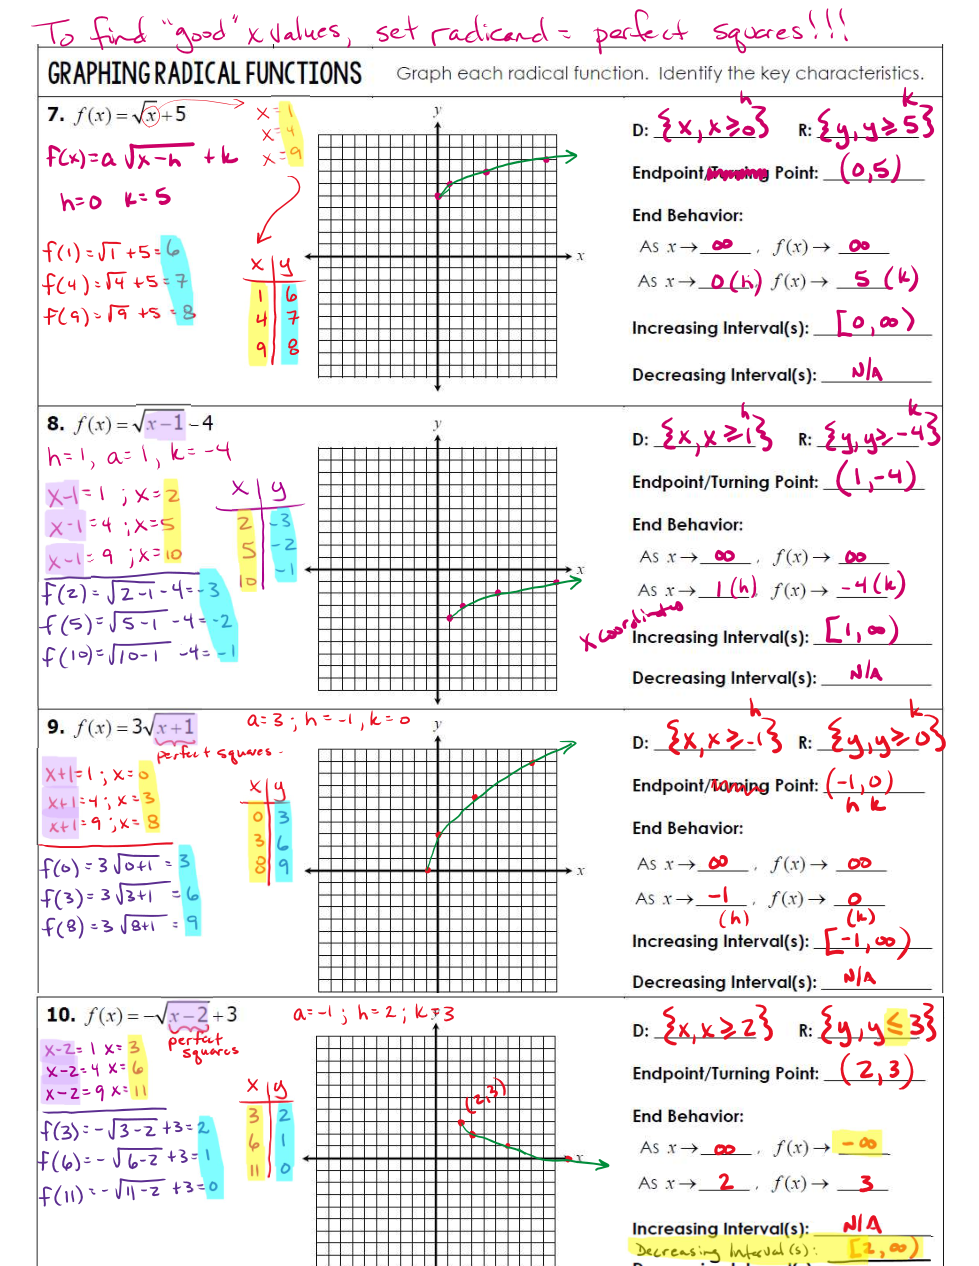 To find "good" x values, set radicand = perfect squares!!!
GRAPHING RADICAL FUNCTIONS Graph each radical function. Identify the key characteristics.
7. f(x) = √x + 5
x = 1
x = 4
x = 9
f(x) = a √x-h + k
h=0 k=5
f(1) = √1 + 5 = 6
f(4) = √4 + 5 = 7
f(9) = √9 + 5 = 8
x y
1 6
4 7
9 8
y
x
h k
D: {x, x ≥ 0} R: {y, y ≥ 5}
Endpoint/Turning Point: (0,5)
End Behavior:
As x → ∞, f(x) → ∞
As x → 0 (h), f(x) → 5 (k)
Increasing Interval(s): [0, ∞)
Decreasing Interval(s): N/A
8. f(x) = √x-1 - 4
h=1, a=1, k=-4
x-1 = 1 ; x=2
x-1 = 4 ; x=5
x-1 = 9 ; x=10
f(2) = √2-1 - 4 = -3
f(5) = √5-1 - 4 = -2
f(10) = √10-1 - 4 = -1
x y
2 -3
5 -2
10 -1
y
x
h k
D: {x, x ≥ 1} R: {y, y ≥ -4}
Endpoint/Turning Point: (1,-4)
End Behavior:
As x → ∞, f(x) → ∞
As x → 1 (h) f(x) → -4 (k)
x coordinates
Increasing Interval(s): [1, ∞)
Decreasing Interval(s): N/A
9. f(x) = 3√x+1
a=3 ; h=-1, k=0
perfect squares
x+1 = 1 ; x=0
x+1 = 4 ; x=3
x+1 = 9 ; x=8
f(0) = 3√0+1 = 3
f(3) = 3√3+1 = 6
f(8) = 3√8+1 = 9
x y
0 3
3 6
8 9
y
x
h k
D: {x, x ≥ -1} R: {y, y ≥ 0}
Endpoint/Turning Point: (-1,0)
h k
End Behavior:
As x → ∞, f(x) → ∞
As x → -1, f(x) → 0
(h) (k)
Increasing Interval(s): [-1, ∞)
Decreasing Interval(s): N/A
10. f(x) = -√x-2 + 3
a=-1 ; h=2 ; k=3
perfect
squares
x-2 = 1 x=3
x-2 = 4 x=6
x-2 = 9 x=11
f(3) = -√3-2 + 3 = 2
f(6) = -√6-2 + 3 = 1
f(11) = -√11-2 + 3 = 0
x y
3 2
6 1
11 0
(2,3)
x
D: {x, x ≥ 2} R: {y, y ≤ 3}
Endpoint/Turning Point: (2,3)
End Behavior:
As x → ∞, f(x) → -∞
As x → 2, f(x) → 3
Increasing Interval(s): N/A
Decreasing Interval(s): [2, ∞)